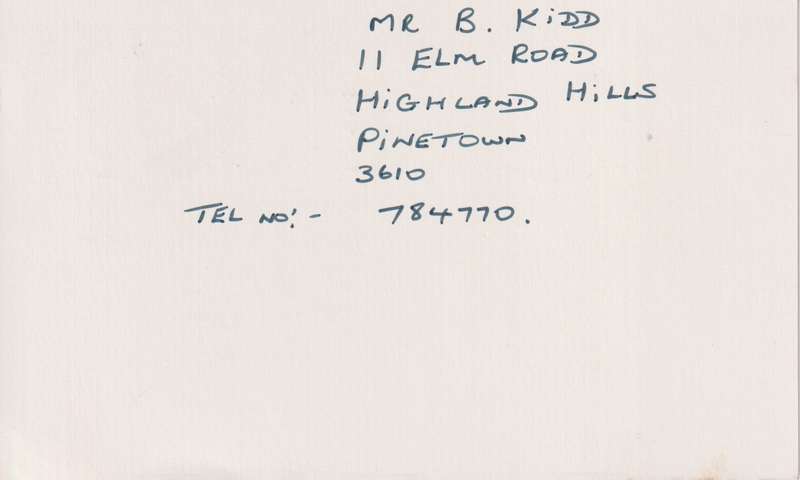 MR B. KiDD
11 ELM ROAD
HiGHLAND HiLLS
PiNETOWN
3610
TEL NO:- 784770.